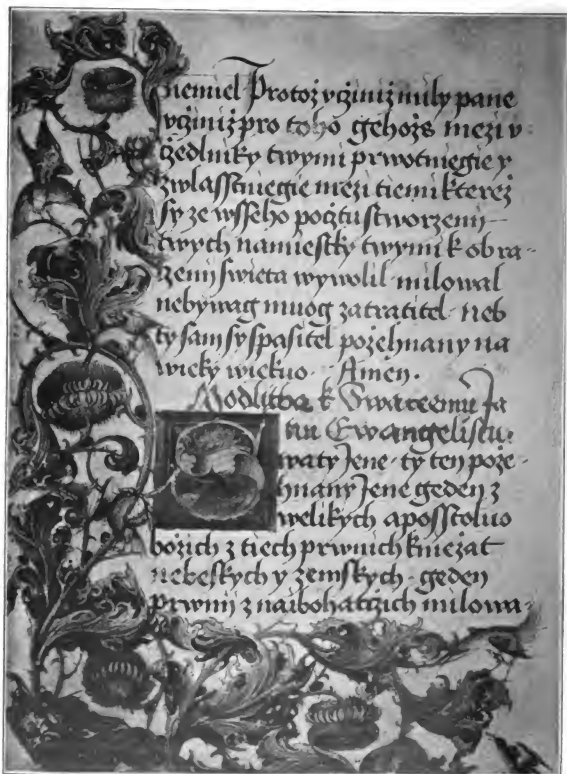 ziemiel Protož včiniž milý pane
včiniž pro toho gehožs mezi v-
čedlniky twymi prwotniegie y
zwlasstniegie mezi tiemi kterež
sy ze wsseho počtu stworzenij
twych namiestky twymi k obra-
zenij swieta wywolil milowal
nebywag muog zatratitel neb
ty sam sy spasitel požehnany na
wieky wiekuo Amen.
Modlitba k Swateemu Ja
nu Ewangelistu.
Swaty Jene ty ten pože-
hnany Jene geden z
welikych aposstoluo
božich z tiech prwnich kniežat
nebeskych y zemskych geden
prwnij z naibohatčzich milowa-